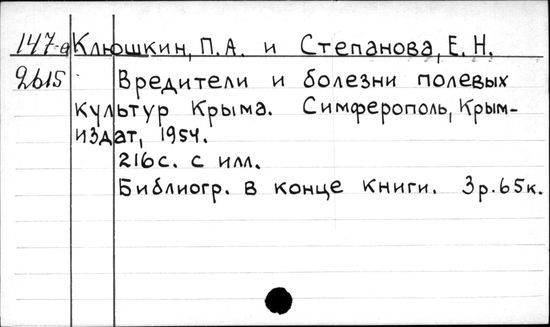 147-а Клюшкин, П.А. и Степанова, Е.Н.
2615 Вредители и болезни полевых
культур Крыма. Симферополь, Крым-
издат, 1954.
216с. с илл.
Библиогр. в конце книги. 3р.65к.